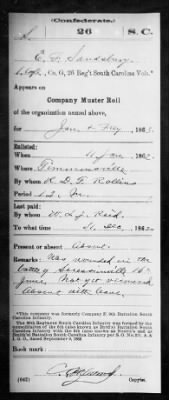 (Confederate.)
S 26 S.C.
E. F. Sandsbury
Co. G, 26 Reg't South Carolina Vols.*
Appears on
Company Muster Roll
of the organization named above,
for Jan & Feby, 1863.
Enlisted:
When 4 Jan, 1862.
Where Timmonsville
By whom R. D. F. Rollins
Period
Last paid:
By whom W. L. J. Reid.
To what time 31 Dec, 1862.
Present or absent Absent.
Remarks: Was wounded in the
battle of Secessionville 16th
June, Not yet returned
Absent with leave.
*This company was formerly Company F, 9th Battalion South
Carolina Infantry.
The 26th Regiment South Carolina Infantry was formed by the
consolidation of the
and
Smith's Battalion South Carolina Infantry per S. O. No.
A. & I. G. O., dated September 9, 1862.
Book mark:
(642) Copyist.